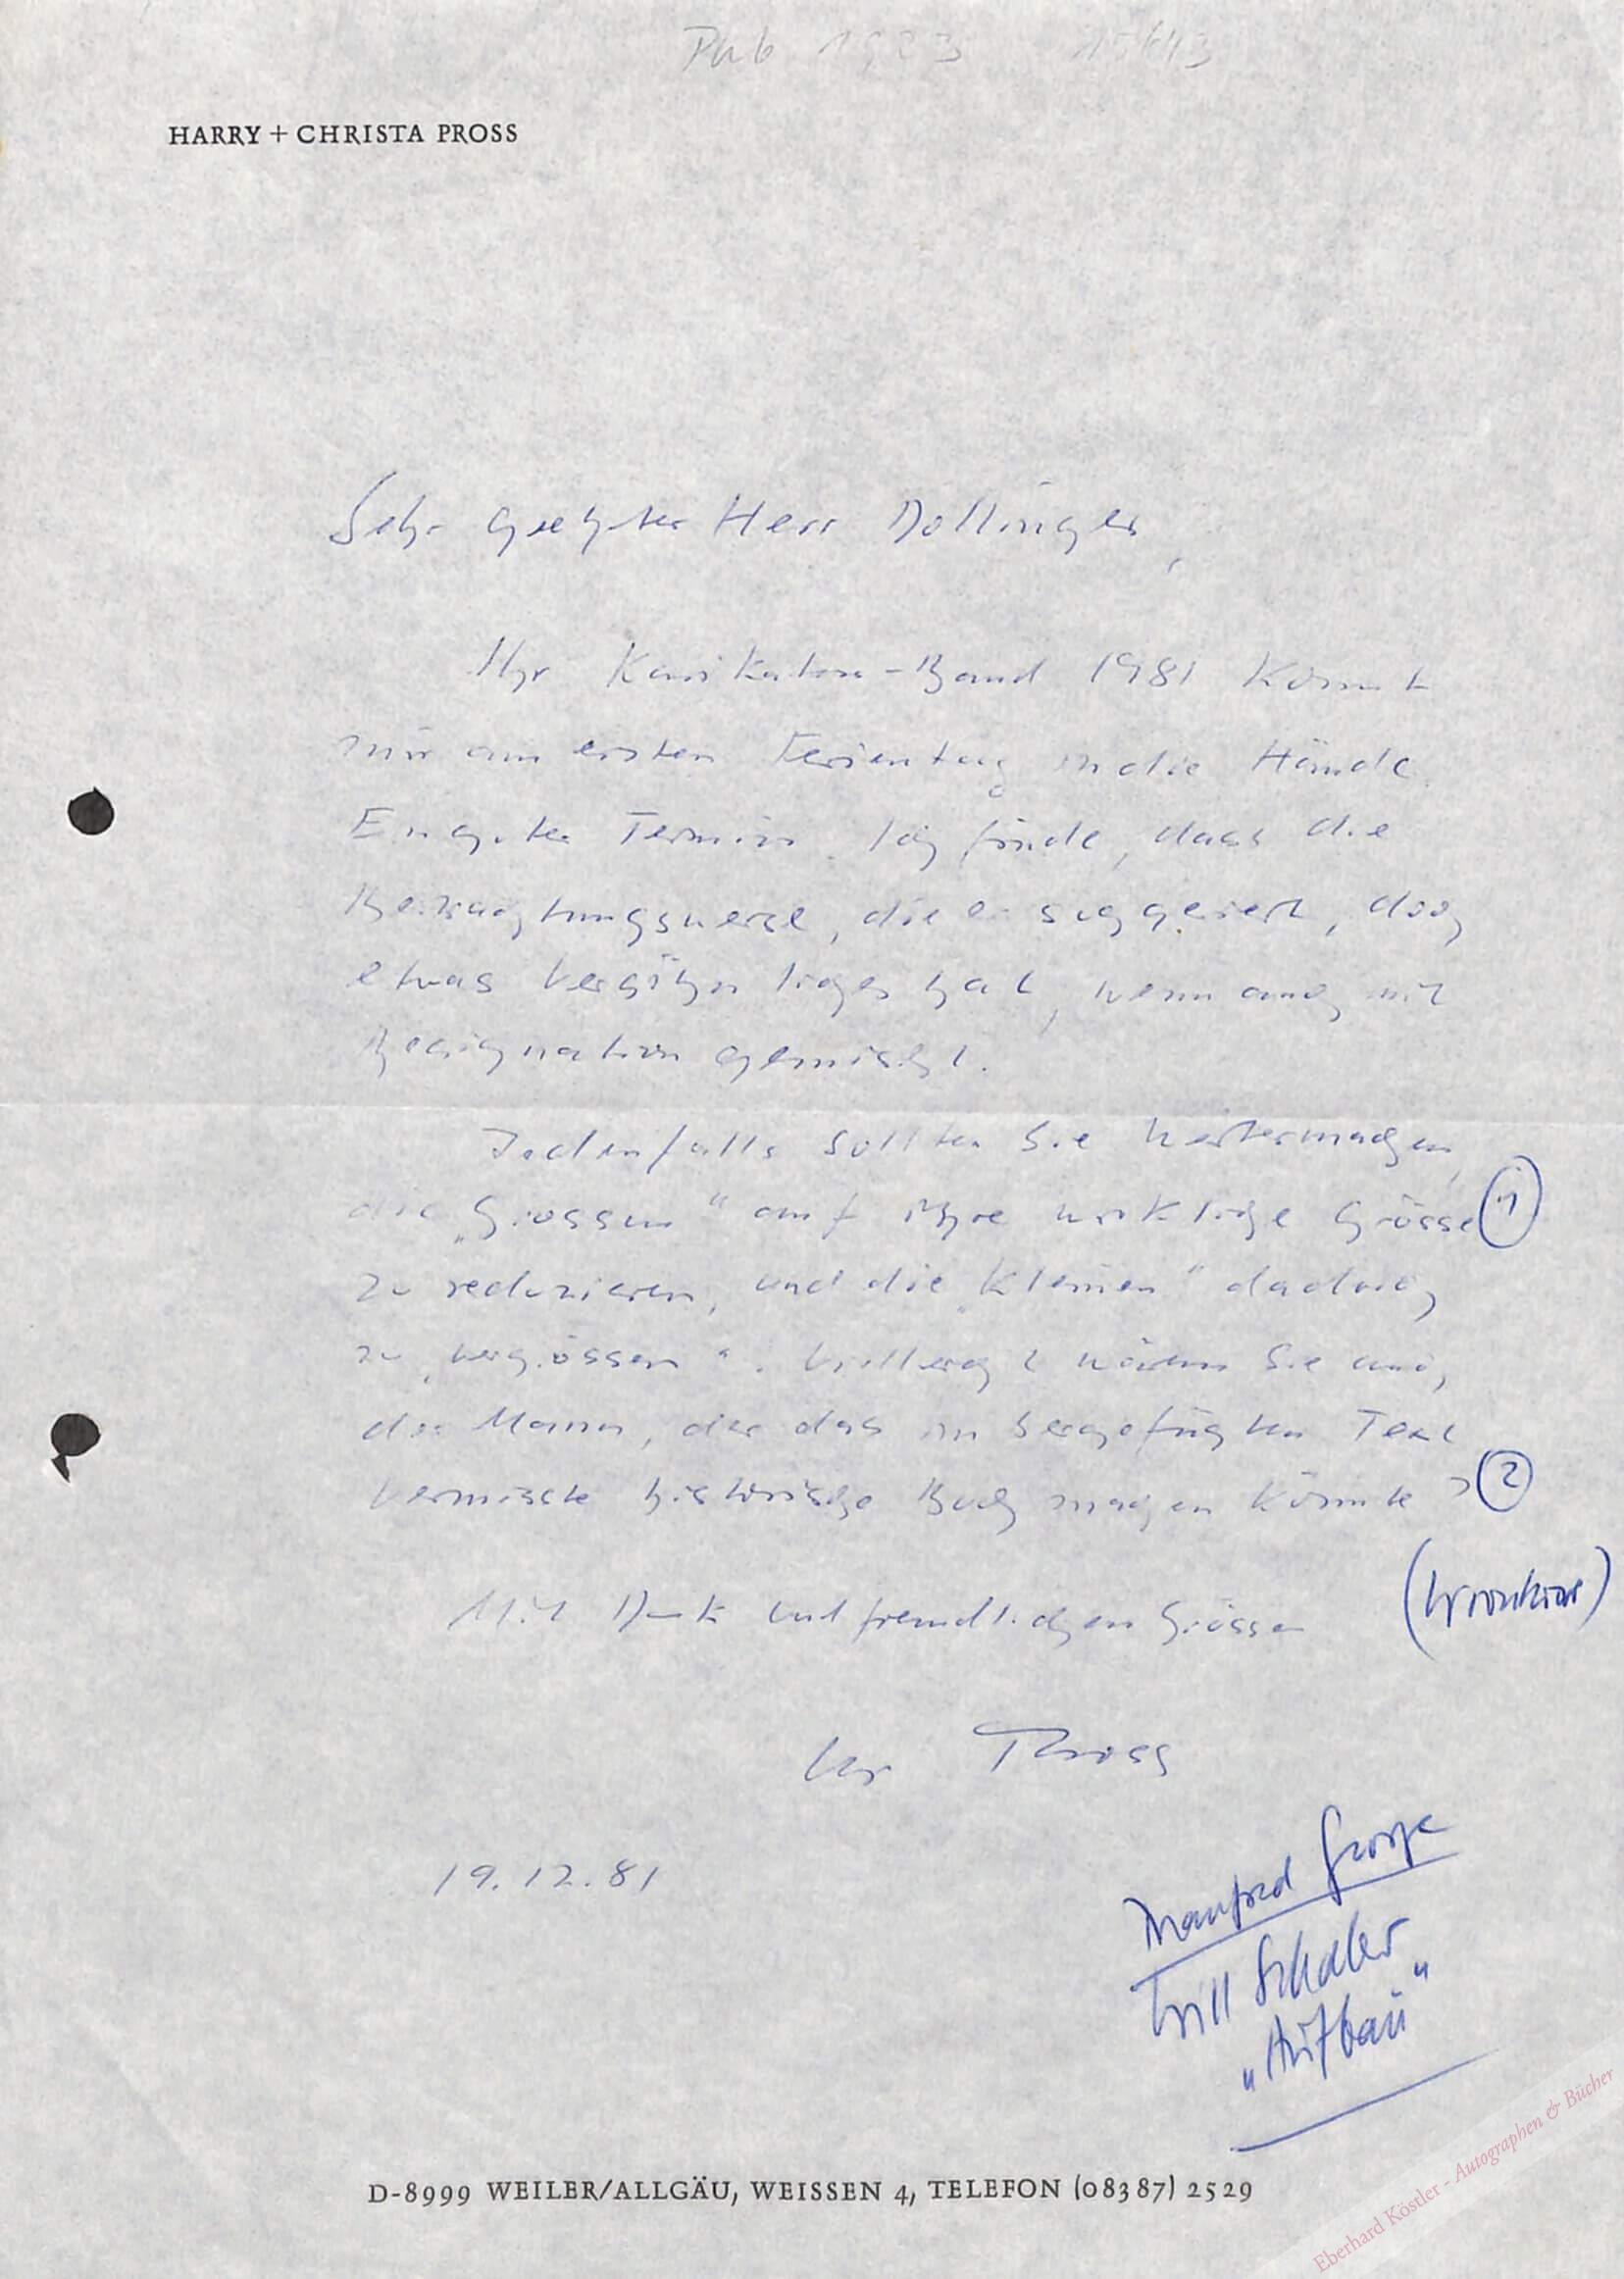 Pub 1923 15643
HARRY + CHRISTA PROSS
Sehr geehrter Herr Dollinger,
Ihr Karikaturen-Band 1981 kommt
mir am ersten Ferientag in die Hände.
Ein guter Termin. Ich finde, dass die
Betrachtungsweise, die er suggeriert, doch
etwas Versöhnliches hat, wenn auch mit
Resignation gemischt.
Jedenfalls sollten Sie weitermachen,
die „Grossen" auf ihre wirkliche Grösse 1
zu reduzieren, und die „Kleinen" dadurch
zu „vergrössern". Vielleicht wären Sie auch
der Mann, der das im beigefügten Text
vermisste historische Buch machen könnte? 2
Mit Dank und freundlichen Grüssen
Ihr Pross
19.12.81
Manfred George
Will Schaber
„Aufbau"
D-8999 WEILER/ALLGÄU, WEISSEN 4, TELEFON (08387) 2529
Eberhard Köstler - Autographen & Bücher